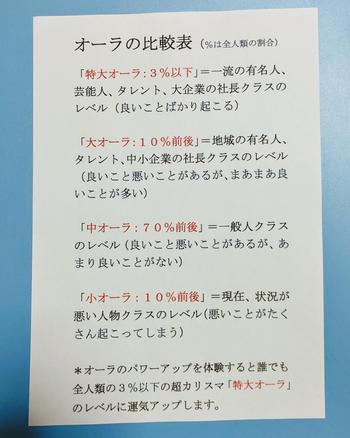 オーラの比較表（％は全人類の割合）
「特大オーラ：３％以下」＝一流の有名人、
芸能人、タレント、大企業の社長クラスの
レベル（良いことばかり起こる）
「大オーラ：１０％前後」＝地域の有名人、
タレント、中小企業の社長クラスのレベル
（良いこと悪いことがあるが、まあまあ良
いことが多い）
「中オーラ：７０％前後」＝一般人クラス
のレベル（良いこと悪いことがあるが、あ
まり良いことがない）
「小オーラ：１０％前後」＝現在、状況が
悪い人物クラスのレベル（悪いことがたく
さん起こってしまう）
＊オーラのパワーアップを体験すると誰でも
全人類の３％以下の超カリスマ「特大オーラ」
のレベルに運気アップします。